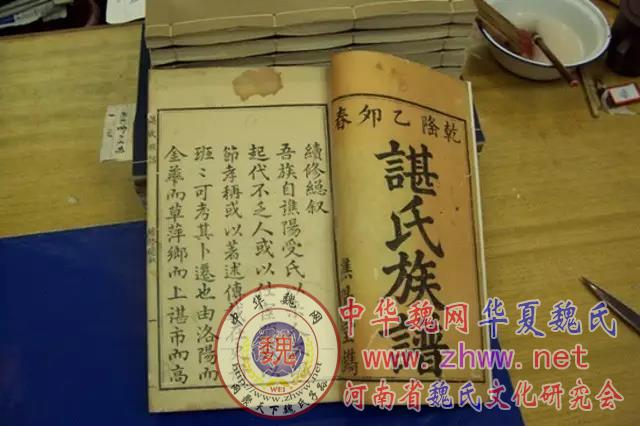 乾隆乙卯春
諶氏族譜
續修總叙
吾族自譙陽受氏以
起代不乏人或以仕
節孝稱或以著述傳
班〻可考其卜遷也由洛陽而
金華而草萍鄉而上諶市而高
中华魏网 华夏魏氏
www.zhww.net
河南省魏氏文化研究会
中华魏网
魏
WEI
http://www.zhww.net